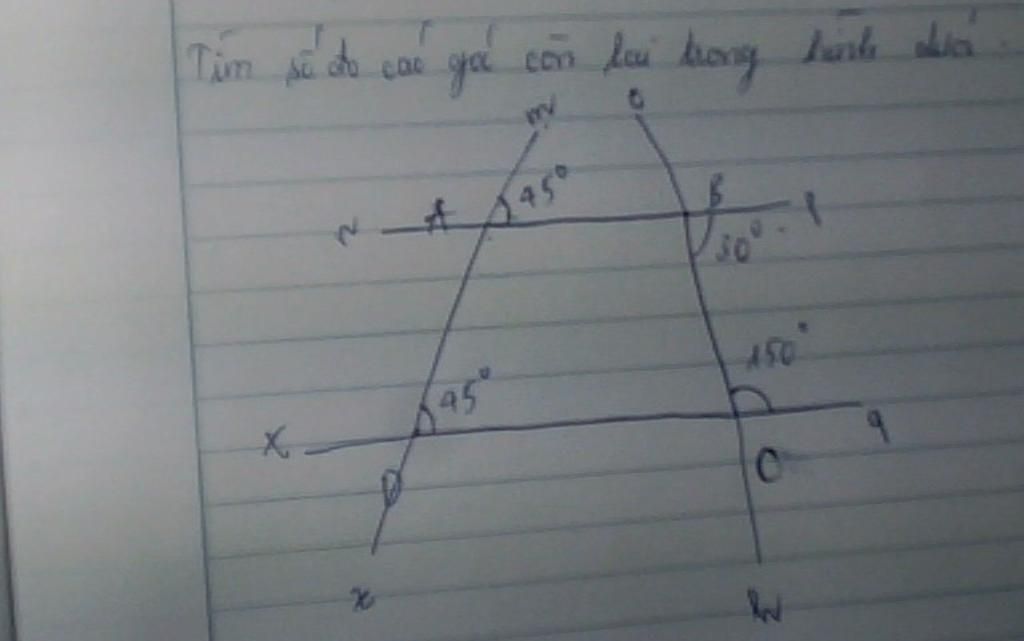 Tìm số đo các gó còn lại trong hình dưới.
m o
45°
N A B
50°
150°
45°
X q
D C
x